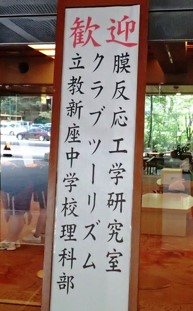 歓迎
膜反応工学研究室
クラブツーリズム
立教新座中学校理科部